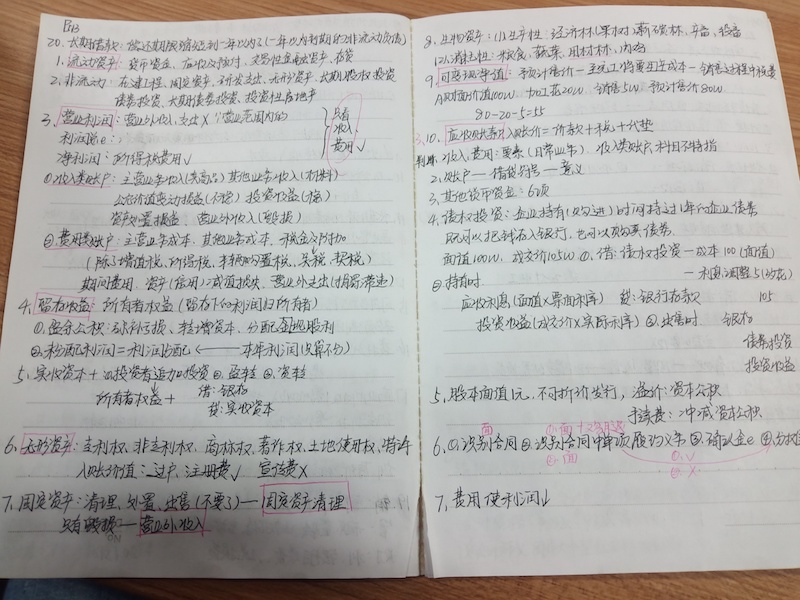 P13
20. 长期借款：偿还期限缩短到一年以内了（一年以内到期的非流动负债）
1. 流动资产：货币资金、应收及预付、交易性金融资产、存货
2. 非流动：在建工程、固定资产、研发支出、无形资产、长期股权投资
债权投资、其他债权投资、投资性房地产
3. 营业利润：营业外收入，支出X
利润总e：
净利润：所得税费用√
只看
收入
费用√
①收入类账户：主营业务收入（卖商品）其他业务收入（材料）
公允价值变动损益（不够）投资收益（够）
资产处置损益、营业外收入（毁损）
②费用类账户：主营业务成本、其他业务成本、税金及附加
（除了增值税、所得税、车辆购置税、关税、契税）
期间费用、资产（信用）减值损失、营业外支出（捐罚滞违）
4. 留存收益：所有者权益（留存下的利润归所有者）
①盈余公积：弥补亏损、转增资本、分配现金股利
②未分配利润=利润分配 ← 本年利润
5. 实收资本+①投资者追加投资②盈转③资转
所有者权益+ 借：银存
贷：实收资本
6. 无形资产：专利权、非专利权、商标权、著作权、土地使用权、特许
入账价值：过户、注册费√ 宣传费X
7. 固定资产：清理、处置、出售（不要了）— 固定资产清理
只有毁损 — 营业外收入
8. 生物资产：(1)生产性：经济林（果树）、薪炭林、产畜、役畜
(2)消耗性：粮食、蔬菜、用材林、肉鸡
9. 可变现净值：预计售价－至完工将要发生成本－销售过程中税费
A账面价值100W，加工花20W，销售5W 预计售价80W
80-20-5=55
3. 10. 应收账款入账价=价款+税+代垫
判断 1. 收入、费用：要素（日常业务），收入类账户、科目不特指
2. 账户—借贷符号—意义
3. 其他货币资金：6项
4. 债权投资：企业持有（以购进）时间持过1年的企业债券
既可以把钱存入银行，也可以购买债券。
面值100W，成交价105W ①借：债权投资—成本100（面值）
—利息调整5（功花）
②持有时
应收利息（面值×票面利率） 贷：银行存款 105
投资收益（成交价×实际利率） ③出售时 银存
债券投资
投资收益
5. 股本面值1元，不可折价发行，溢价：资本公积
手续费：冲减资本公积
6. ①识别合同②识别合同中单项履约义务③确认金e④分摊
7. 费用使利润↓